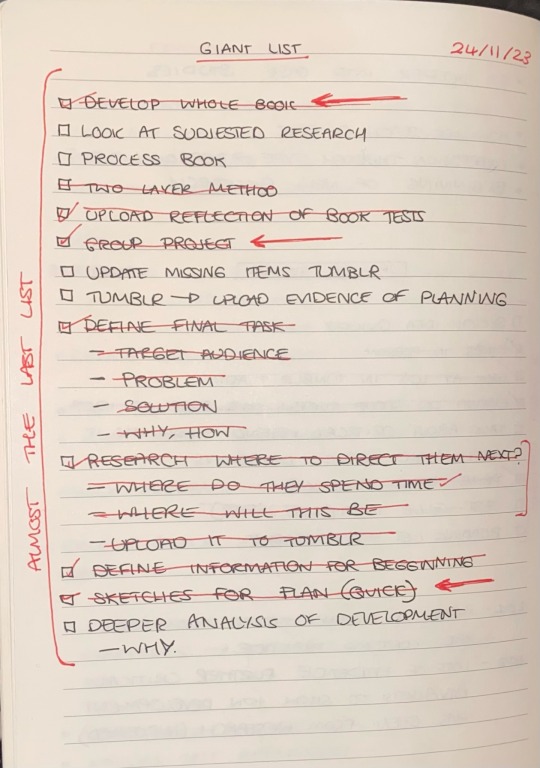 GIANT LIST
24/11/23
DEVELOP WHOLE BOOK
LOOK AT SUDJESTED RESEARCH
PROCESS BOOK
TWO LAYER METHOD
UPLOAD REFLECTION OF BOOK TESTS
GROUP PROJECT
UPDATE MISSING ITEMS TUMBLR
TUMBLR → UPLOAD EVIDENCE OF PLANNING
DEFINE FINAL TASK
- TARGET AUDIENCE
- PROBLEM
- SOLUTION
- WHY, HOW
RESEARCH WHERE TO DIRECT THEM NEXT?
- WHERE DO THEY SPEND TIME
- WHERE WILL THIS BE
- UPLOAD IT TO TUMBLR
DEFINE INFORMATION FOR BEGINNING
SKETCHES FOR PLAN (QUICK)
DEEPER ANALYSIS OF DEVELOPMENT
- WHY.
ALMOST THE LAST LIST